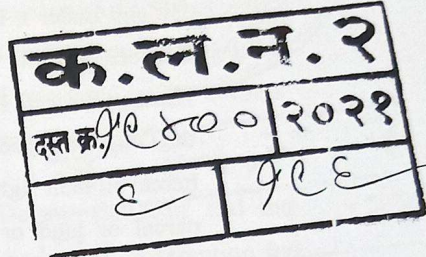 क.ल.न.२
दस्त क्र.१९४०० २०२१
६ १९६